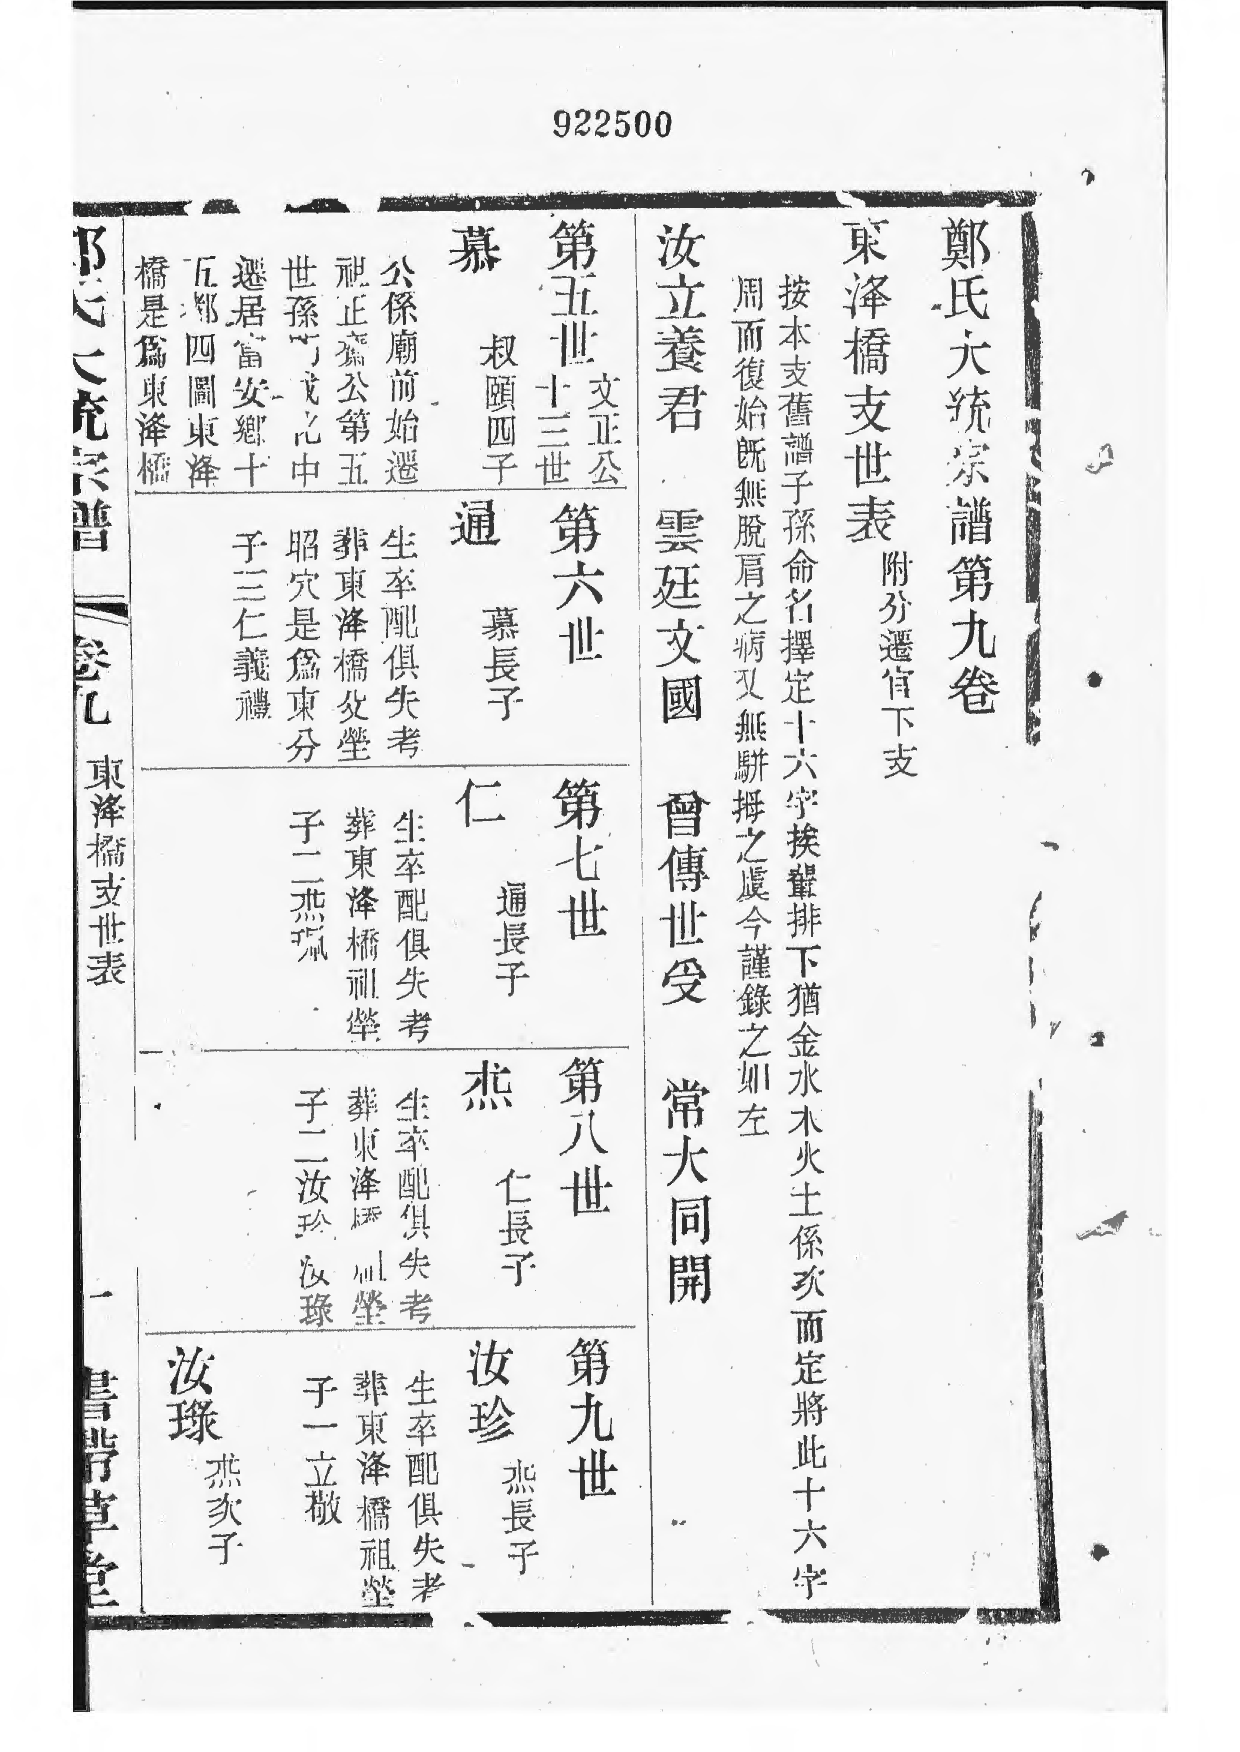 922500
鄭氏大統宗譜第九卷
東洚橋支世表
附分遷官下支
按本支舊譜子孫命名擇定十六字挨輩排下猶金水木火土係次而定將此十六字
周而復始既無脫肩之病又無駢拇之虞今謹錄之如左
汝立養君 雲廷文國 曾傳世受 常大同開
第五世
文正公
十三世
慕
叔頤四子
公係廟前始遷
祖正齋公第五
世孫 中
遷居富安鄉十
五都四圖東洚
橋是爲東洚橋
第六世
通
慕長子
生卒配俱失考
葬東洚橋攻塋
昭穴是爲東分
子三仁義禮
第七世
仁
通長子
生卒配俱失考
葬東洚橋祖塋
子二烝珮
第八世
烝
仁長子
生卒配俱失考
葬東洚橋祖塋
子二汝珍汝琭
第九世
汝珍
烝長子
生卒配俱失考
葬東洚橋祖塋
子一立敬
汝琭
烝次子
鄭氏大統宗譜
卷九
東洚橋支世表
一
書帶草堂